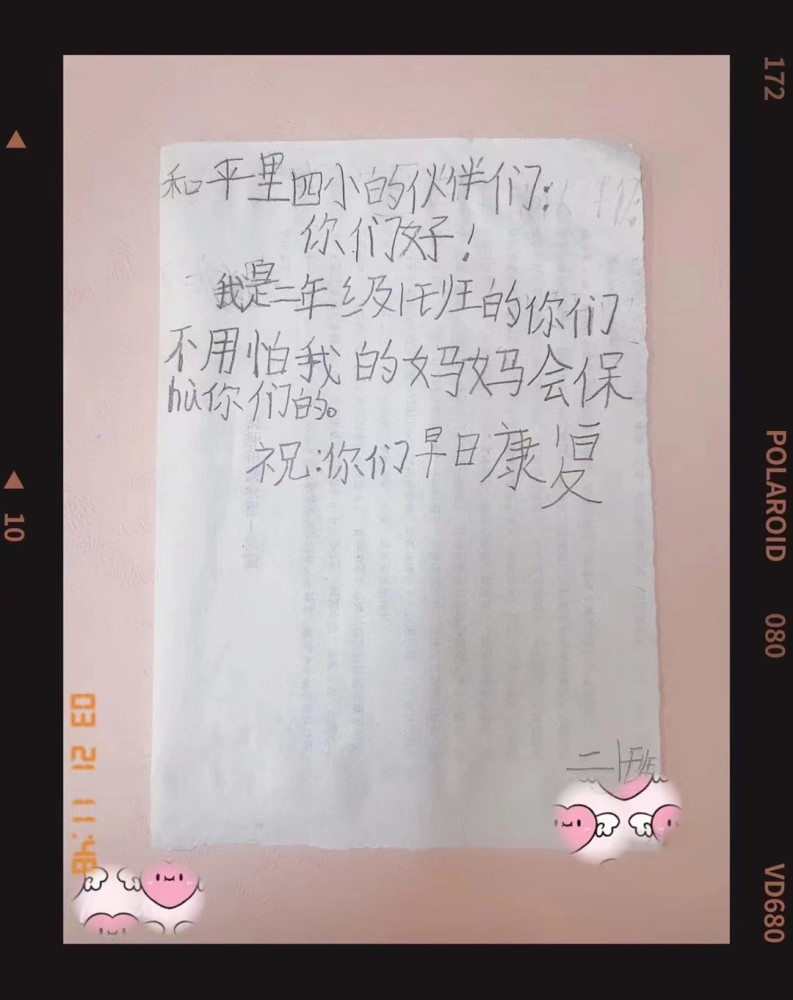 和平里四小的伙伴们:
你们好!
我是二年级1班的你们
不用怕我的妈妈会保
hù你们的。
祝:你们早日康复
二1班
172
POLAROID
080
VD680
10
03 21 11:48